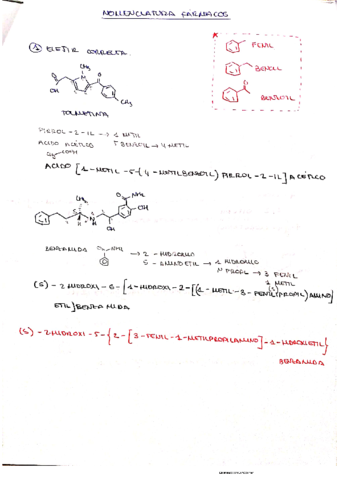 NOMENCLATURA FARMACOS
① ELEGIR CORRECTA.
FENIL
BENCIL
BENZOIL
CH₃
N
O
OH
CH₃
TOLMETINA
PIRROL-2-IL → 1 METIL
ACIDO ACÉTICO 5 BENZOIL → 4 METIL
ACIDO [1-METIL-5-(4-METILBENZOIL)PIRROL-2-IL]ACÉTICO
O NH₂
CH₃
OH
N
H H
OH
BENZAMIDA
O NH₂
→ 2-HIDROXILO
5-AMINOETIL → 1 HIDROXILO
N PROPIL → 3 FENIL
1 METIL
(S)-2HIDROXI-5-[1-HIDROXI-2-[(1-METIL-3-FENILPROPIL)AMINO]
(S)
ETIL]BENZAMIDA
(S)-2HIDROXI-5-{2-[3-FENIL-1-METILPROPILAMINO]-1-HIDROXIETIL}
BENZAMIDA